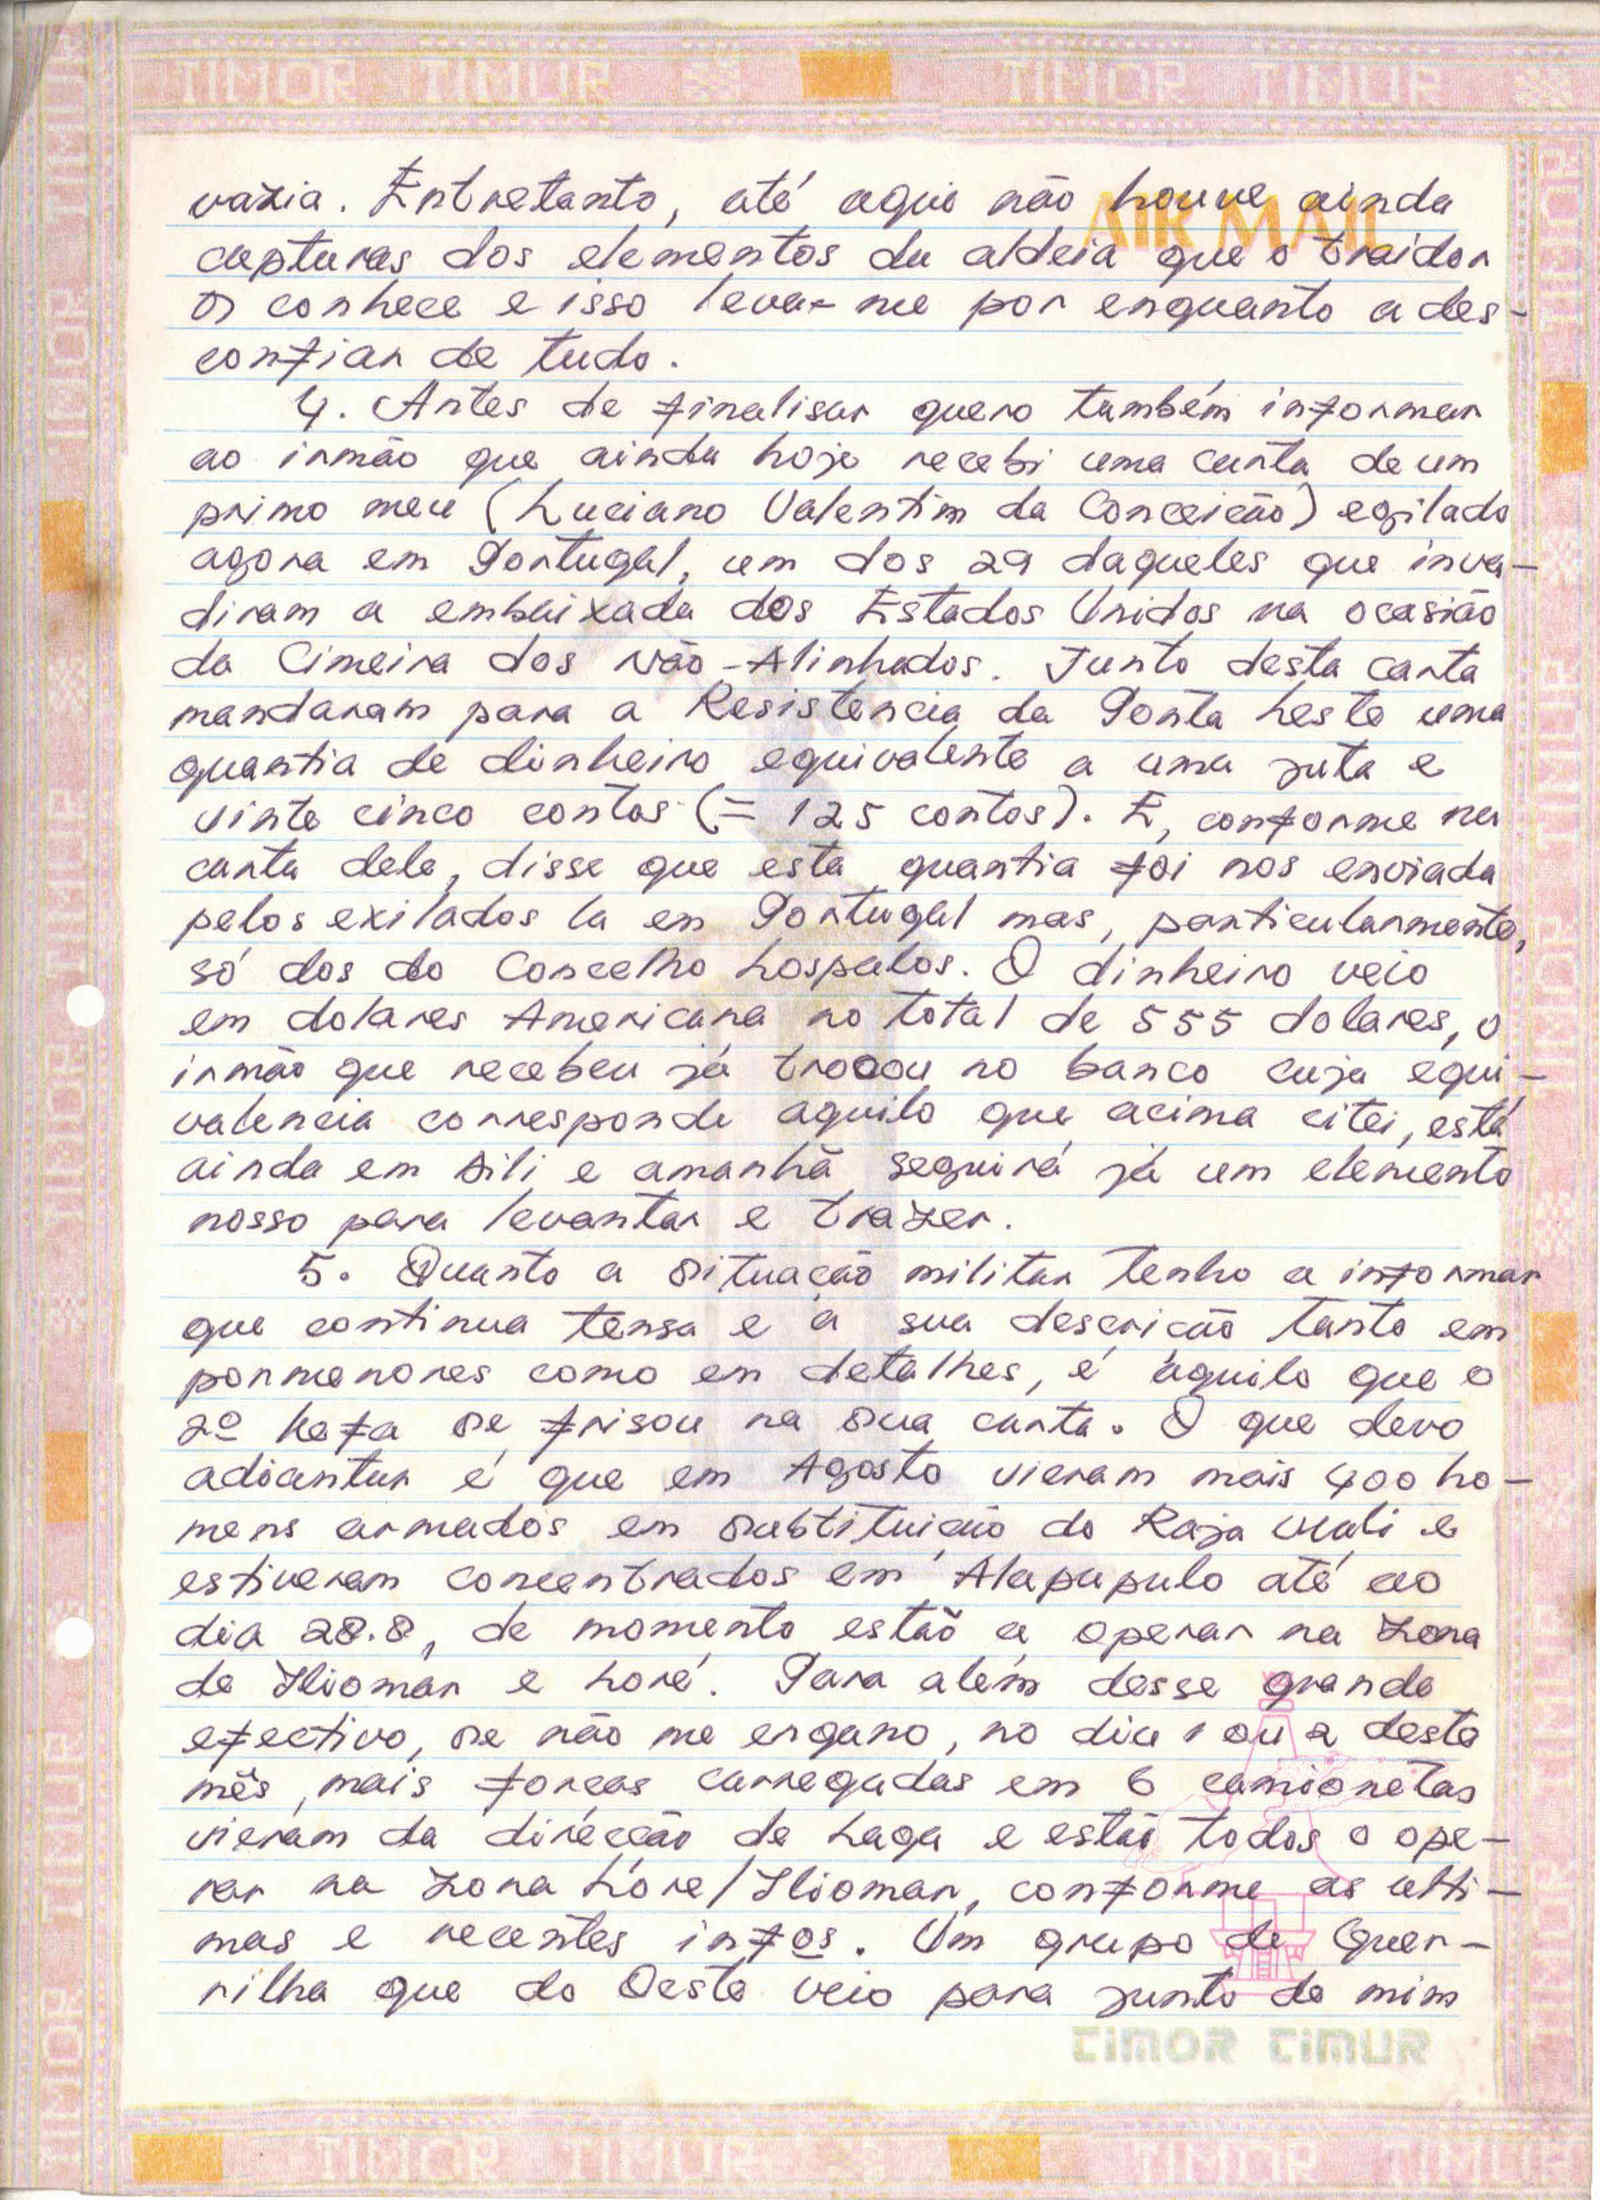 TIMOR TIMUR TIMOR TIMUR
AIR MAIL
vazia. Entretanto, até aqui não houve ainda
capturas dos elementos da aldeia que o traidor
os conhece e isso leva-me por enquanto a des-
confiar de tudo.
4. Antes de finalisar quero também informar
ao irmão que ainda hoje recebi uma carta de um
primo meu (Luciano Valentim da Conceicão) egilado
agora em Portugal, um dos 29 daqueles que inva-
diram a embaixada dos Estados Unidos na ocasião
da Cimeira dos Não-Alinhados. Junto desta carta
mandaram para a Resistência da Ponta Leste uma
quantia de dinheiro equivalente a uma juta e
vinte cinco contos (= 125 contos). E, conforme na
carta dele, disse que esta quantia foi nos enviada
pelos exilados la em Portugal mas, particularmente,
só dos do Concelho Lospalos. O dinheiro veio
em dolares Americana no total de 555 dolares, o
irmão que recebeu já trocou no banco cuja equi-
valencia corresponde aquilo que acima citei, está
ainda em Dili e amanhã seguirá já um elemento
nosso para levantar e trazer.
5. Quanto a situação militar tenho a informar
que continua tensa e a sua descricão tanto em
pormenores como em detalhes, é aquilo que o
2º Kofa se frisou na sua carta. O que devo
adiantar é que em Agosto vieram mais 400 ho-
mens armados em substituição do Raja Wali e
estiveram concentrados em Alapupulo até ao
dia 28.8, de momento estão a operar na Zona
de Iliomar e Loré. Para além desse grande
efectivo, se não me engano, no dia 1 ou 2 deste
mês, mais forças carregadas em 6 camionetas
vieram da direcção de Laga e estão todos o ope-
rar na Zona Lóre/Iliomar, conforme as ulti-
mas e recentes infos. Um grupo de Guer-
rilha que do Oeste veio para junto de mim
TIMOR TIMUR
TIMOR TIMUR TIMOR TIMUR